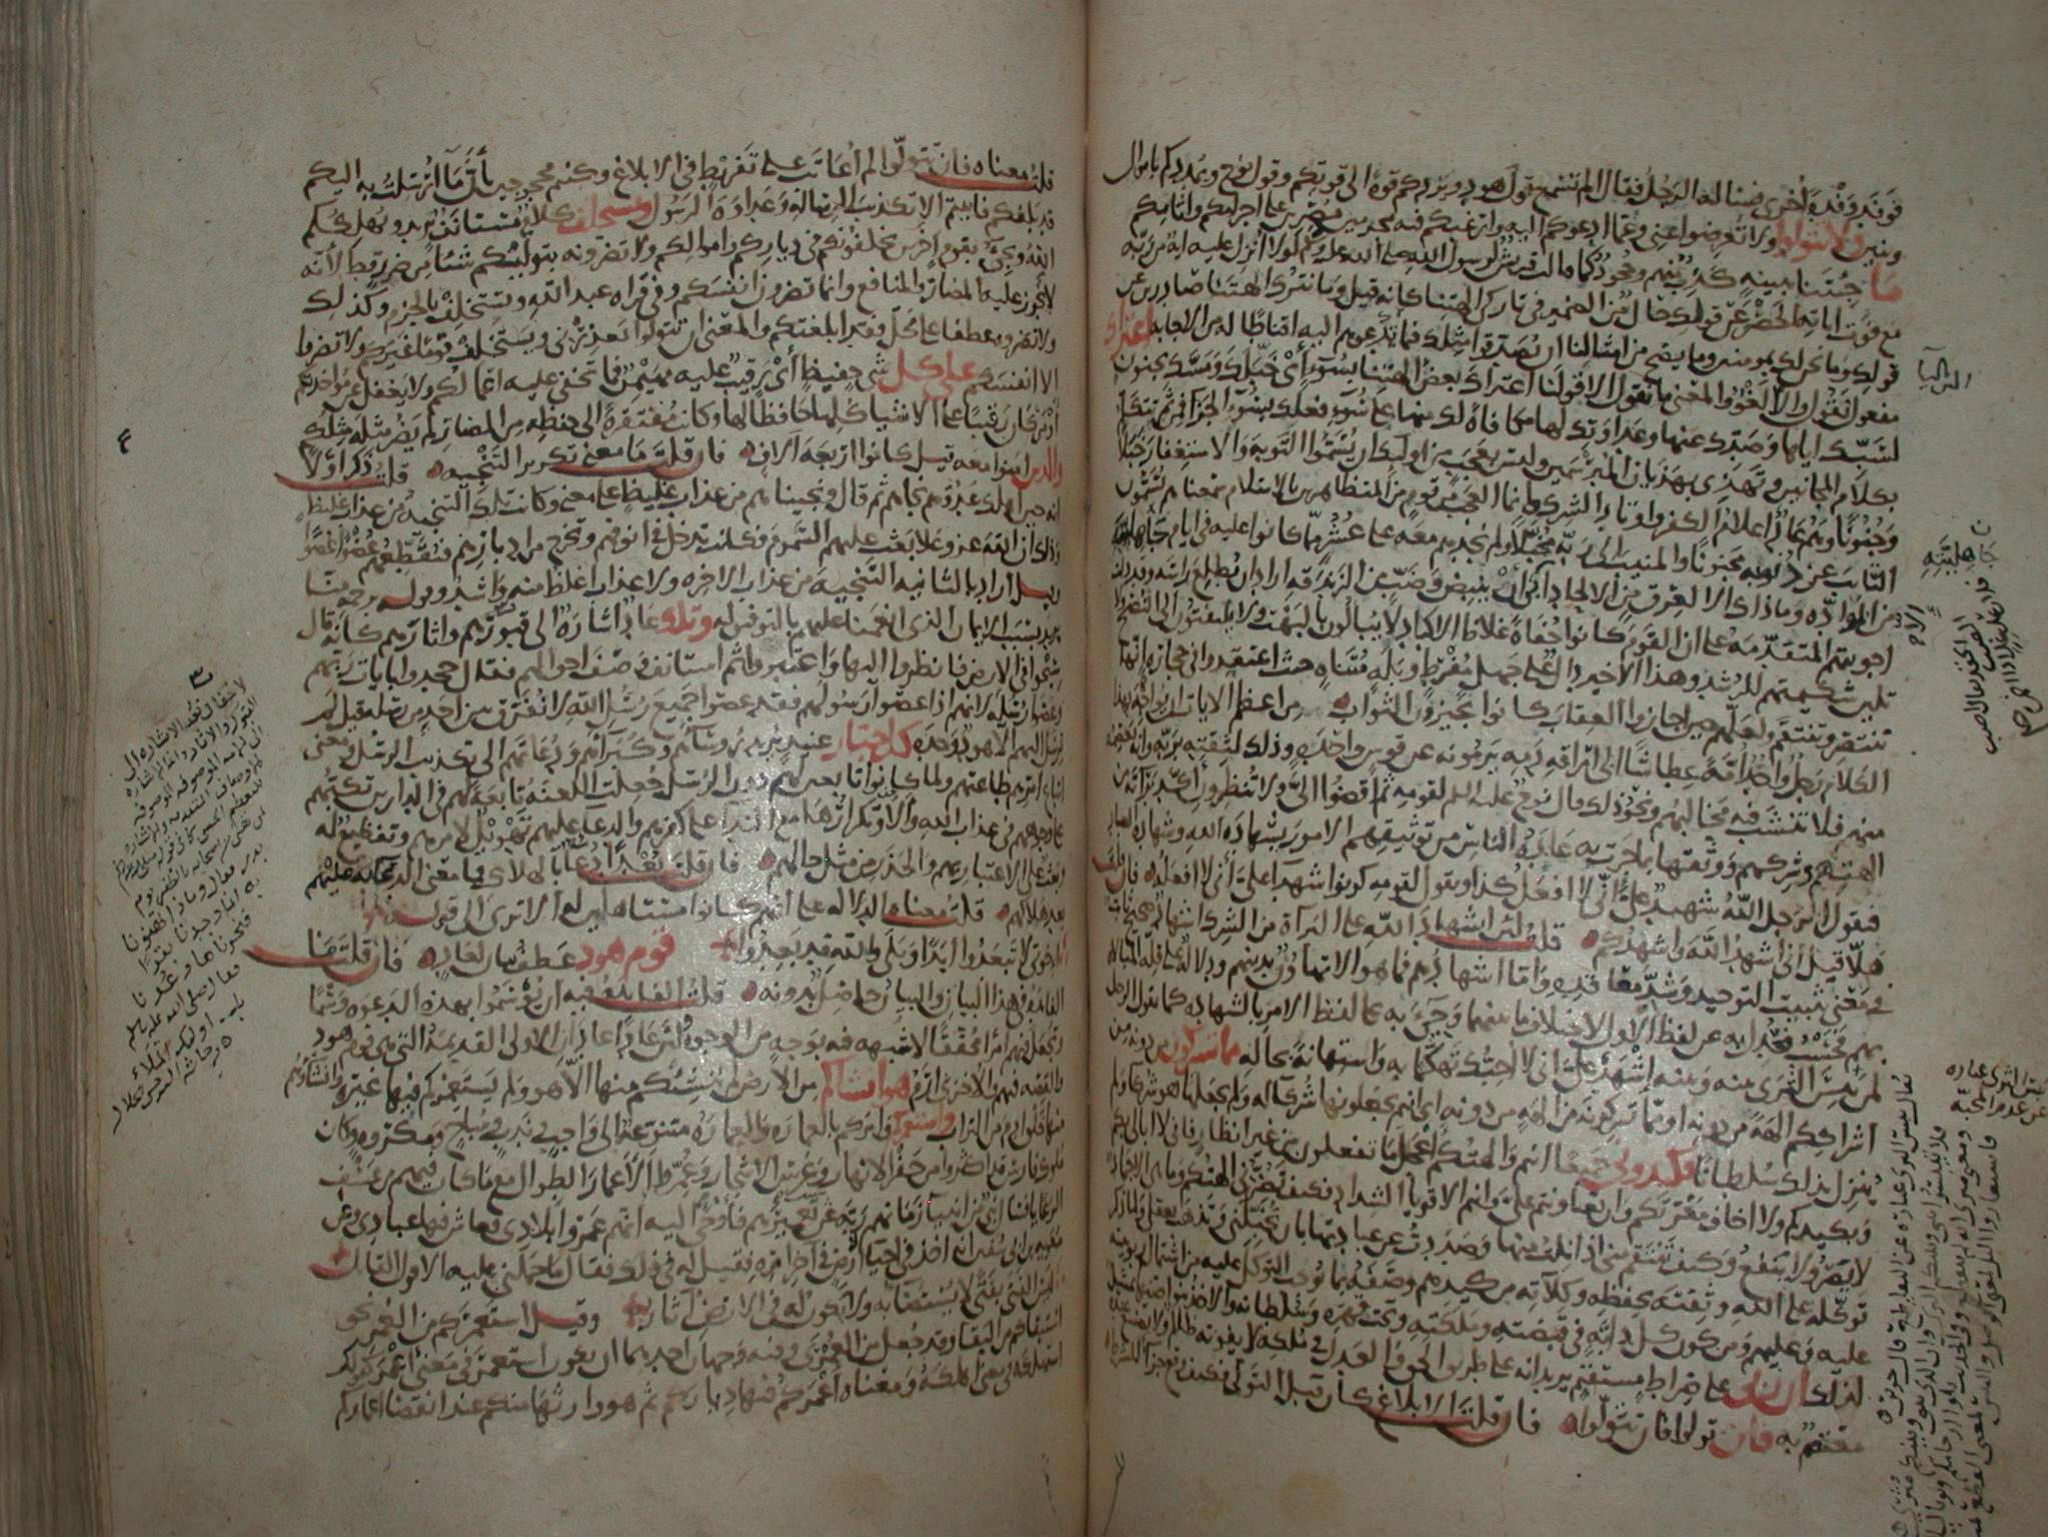 فوفد وفدة اخرى فسأله الرجل فقال الم تسمع قول هود ويزدكم قوة الى قوتكم وقول نوح ويمددكم باموال
وبنين ولا تتولوا ولا تعرضوا عني وعما ادعوكم اليه وارغبكم فيه مجرمين مصرين على اجرامكم واثامكم
ما جئتنا ببينة كذب منهم وجحود كما قالت قريش لرسول الله صلى الله عليه وسلم لولا انزل عليه اية من ربه
مع فوت اياته الحصر عن قولك حال من الضمير في تاركي الهتنا كانه قيل وما نترك الهتنا صادرين عن
قولك وما نحن لك بمومنين وما يصح من امثالنا ان يصدقوا مثلك فيما يدعوهم اليه اقناطا له من الاجابة اعتراك
مفعول نقول والا لغو والمعنى ما نقول الا قولنا اعتراك بعض الهتنا بسوء اي خبلك ومسك بجنون
لسبك اياها وصدك عنها وعداوتك لها مكافاة لك منها على سوء فعلك بسوء الجزاء فمن ثم تتكلم
بكلام المجانين وتهذي بهذيان المبرسمين وليس بعجب من اولئك ان يسموا التوبة والاستغفار خبلا
وجنونا وهم عاد اعلام الكفر واوتاد الشرك وانما العجب من قوم من المتظاهرين بالاسلام سمعناهم يسمون
التائب من ذنوبه مجنونا والمنيب الى ربه مخبلا ولم نجدهم معه على عشر مما كانوا عليه في ايام جاهليته
من الموادة وما ذاك الا لعرق من الالحاد ابى الا ان ينبض وضب من الزندقة اراد ان يطلع راسه وقد دلت
اجوبتهم المتقدمة على ان القوم كانوا جفاة غلاظ الاكباد لا يبالون بالبهت ولا يلتفتون الى النصح ولا
تلين شكيمتهم للرشد وهذا الاخير دال على جهل مفرط وبله متناه حيث اعتقدوا في حجارة انها
تنتصر وتنتقم ولعلهم حين اجازوا العقاب كانوا يجيزون الثواب من اعظم الايات ان يواجه بهذا
الكلام رجل واحد امة عطاشا الى اراقة دمه يرمونه عن قوس واحدة وذلك لثقته بربه وانه يعصمه
منهم فلا تنشب فيه مخالبهم ونحو ذلك قال نوح عليه السلم لقومه ثم اقضوا الي ولا تنظرون اكد براءته من
الهتهم وشركهم ووثقها بما جرت به عادة الناس من توثيقهم الامور بشهادة الله وشهادة العباد
فيقول الرجل الله شهيد على اني لا افعل كذا ويقول لقومه كونوا شهداء على اني لا افعله فان قلت
هلا قيل اني اشهد الله واشهدكم قلت لان اشهاد الله على البراءة من الشرك اشهاد صحيح ثابت
في معنى تثبيت التوحيد وشد معاقده واما اشهادهم فما هو الا تهاون بدينهم ودلالة على قلة المبالاة
بهم فحسب فعدل به عن لفظ الاول لاختلاف ما بينهما وجيء به على لفظ الامر بالشهادة كما يقول الرجل
لمن يبس الثرى بينه وبينه اشهد على اني لا احبك تهكما به واستهانة بحاله مما تشركون من دونه من
اشراككم الهة من دونه او مما تشركونه من الهة من دونه اي انتم تجعلونها شركاء له ولم يجعلها هو شركاء ولم
ينزل بذلك سلطانا فكيدوني جميعا انتم والهتكم اعجل ما تفعلون من غير انظار فاني لا ابالي بكم
وبكيدكم ولا اخاف معرتكم وان تعاونتم علي وانتم الاقوياء الشداد فكيف تضرني الهتكم وما هي الا جماد
لا يضر ولا ينفع وكيف تنتقم مني اذا نلت منها وصددت عن عبادتها بان تخبلني وتذهب بعقلي ولما ذكر
توكله على الله وثقته بحفظه وكلاءته من كيدهم وصفه بما يوجب التوكل عليه من اشتمال ربوبيته
عليه وعليهم ومن كون كل دابة في قبضته وملكته وتحت قهره وسلطانه والاخذ بنواصيها تمثيل
لذلك ان ربي على صراط مستقيم يريد انه على طريق الحق والعدل في ملكه لا يفوته ظالم ولا يضيع عنده
معتصم به فان تولوا فان تتولوا فان قلت الابلاغ كان قبل التولي فكيف وقع جزاء للشرط
قلت معناه فان تتولوا لم اعاتب على تفريط في الابلاغ وكنتم محجوجين بان ما ارسلت به اليكم
قد بلغكم فابيتم الا تكذيب الرسالة وعداوة الرسول ويستخلف كلام مستانف يريد ويهلككم
الله ويجيء بقوم اخرين يخلفونكم في دياركم واموالكم ولا تضرونه بتوليكم شيئا من ضرر قط لانه
لا يجوز عليه المضار والمنافع وانما تضرون انفسكم وفي قراة عبد الله ويستخلف بالجزم وكذلك
ولا تضروه عطفا على محل فقد ابلغتكم والمعنى ان تتولوا يعذرني ويستخلف قوما غيركم ولا تضروا
الا انفسكم على كل شيء حفيظ اي رقيب عليه مهيمن فما تخفى عليه اعمالكم ولا يغفل عن مؤاخذتكم
او من كان رقيبا على الاشياء كلها حافظا لها وكانت مفتقرة الى حفظه من المضار لم يضر مثله مثلكم
والذين امنوا معه قيل كانوا اربعة الاف فان قلت ما معنى تكرير التنجية قلت ذكر اولا
انه حين اهلك عدوهم نجاهم ثم قال ونجيناهم من عذاب غليظ على معنى وكانت تلك التنجية من عذاب غليظ
وذلك ان الله عز وعلا بعث عليهم السموم فكانت تدخل في انوفهم وتخرج من ادبارهم فتقطعهم عضوا عضوا
وقيل اراد بالثانية التنجية من عذاب الاخرة ولا عذاب اغلظ منه واشد وقوله برحمة منا
يريد بسبب الايمان الذي انعمنا عليهم بالتوفيق له وتلك عاد اشارة الى قبورهم واثارهم كانه قال
سيحوا في الارض فانظروا اليها واعتبروا ثم استانف في وصف احوالهم فقال جحدوا بايات ربهم
وعصوا رسله لانهم اذا عصوا رسولهم فقد عصوا جميع رسل الله لا نفرق بين احد من رسله قيل لم
يرسل اليهم الا هود وحده كل جبار عنيد يريد رؤساءهم وكبراءهم ودعاتهم الى تكذيب الرسل ومعنى
اتباع امرهم طاعتهم ولما كانوا تابعين لهم دون الرسل جعلت اللعنة تابعة لهم في الدارين تكبهم
على وجوههم في عذاب الله والا وتكرارها مع النداء على كفرهم والدعاء عليهم تهويل لامرهم وتفظيع له
وبعث على الاعتبار بهم والحذر من مثل حالهم فان قلت بعدا دعاء بالهلاك فما معنى الدعاء به عليهم
بعد هلاكهم قلت معناه الدلالة على انهم كانوا مستاهلين له الا ترى الى قوله
اخوتي لا تبعدوا ابدا وبلى والله قد بعدوا قوم هود عطف بيان لعاد فان قلت ما
الفائدة في هذا البيان والبيان حاصل بدونه قلت الفائدة فيه ان يوسموا بهذه الدعوة وسما
وتجعل فيهم امرا محققا لا شبهة فيه بوجه من الوجوه ولان عادا عادان الاولى القديمة التي هي قوم هود
والقصة فيهم والاخرى ارم هو انشاكم من الارض لم ينشئكم منها الا هو ولم يستعمركم فيها غيره وانشاؤهم
منها خلق ادم من التراب واستعمركم وامركم بالعمارة والعمارة متنوعة الى واجب وندب ومباح ومكروه وكان
ملوك فارس قد اكثروا من حفر الانهار وغرس الاشجار وعمروا الاعمار الطوال مع ما كان فيهم من عسف
الرعايا فسال نبي من انبياء زمانهم ربه عن سبب تعميرهم فاوحى اليه انهم عمروا بلادي فعاش فيها عبادي وعن
معوية بن ابي سفين انه اخذ في احياء ارض في اخر امره فقيل له في ذلك فقال ما حملني عليه الا قول القائل
ليس الفتى بفتى لا يستضاء به ولا يكون له في الارض اثار وقيل استعمركم من العمر نحو
استبقاكم من البقاء وقد جعل من العمرى وفيه وجهان احدهما ان يكون استعمر في معنى اعمر كقولك
استهلكه في معنى اهلكه ومعناه اعمركم فيها دياركم ثم هو وارثها منكم عند انقضاء اعماركم